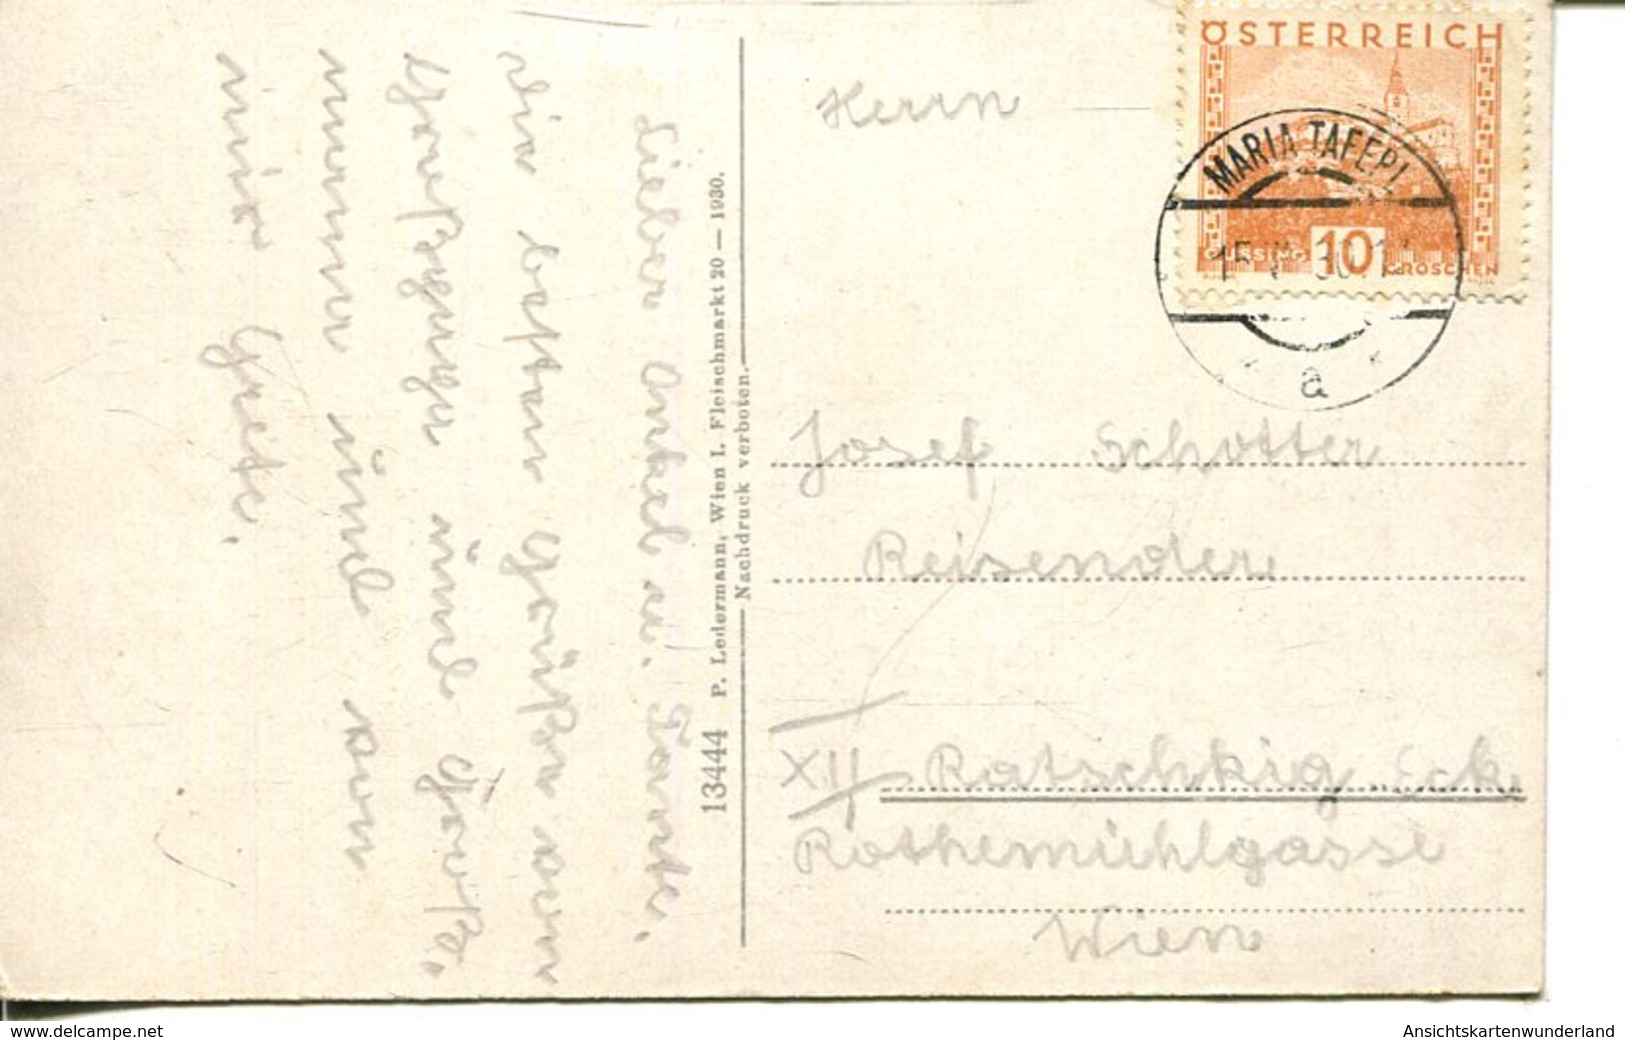 Lieber Onkel u. Tante.
die besten Grüße von
Großmutter und Großv.
und von
mir Grete.
13444 P. Ledermann, Wien I. Fleischmarkt 20 — 1930.
Nachdruck verboten.
ÖSTERREICH
GÜSSING 10 GROSCHEN
MARIA TAFERL
a
Herrn
Josef Schotter
Reisender
XII Ratschkig Eck
Rothemühlgasse
Wien
www.delcampe.net
Ansichtskartenwunderland